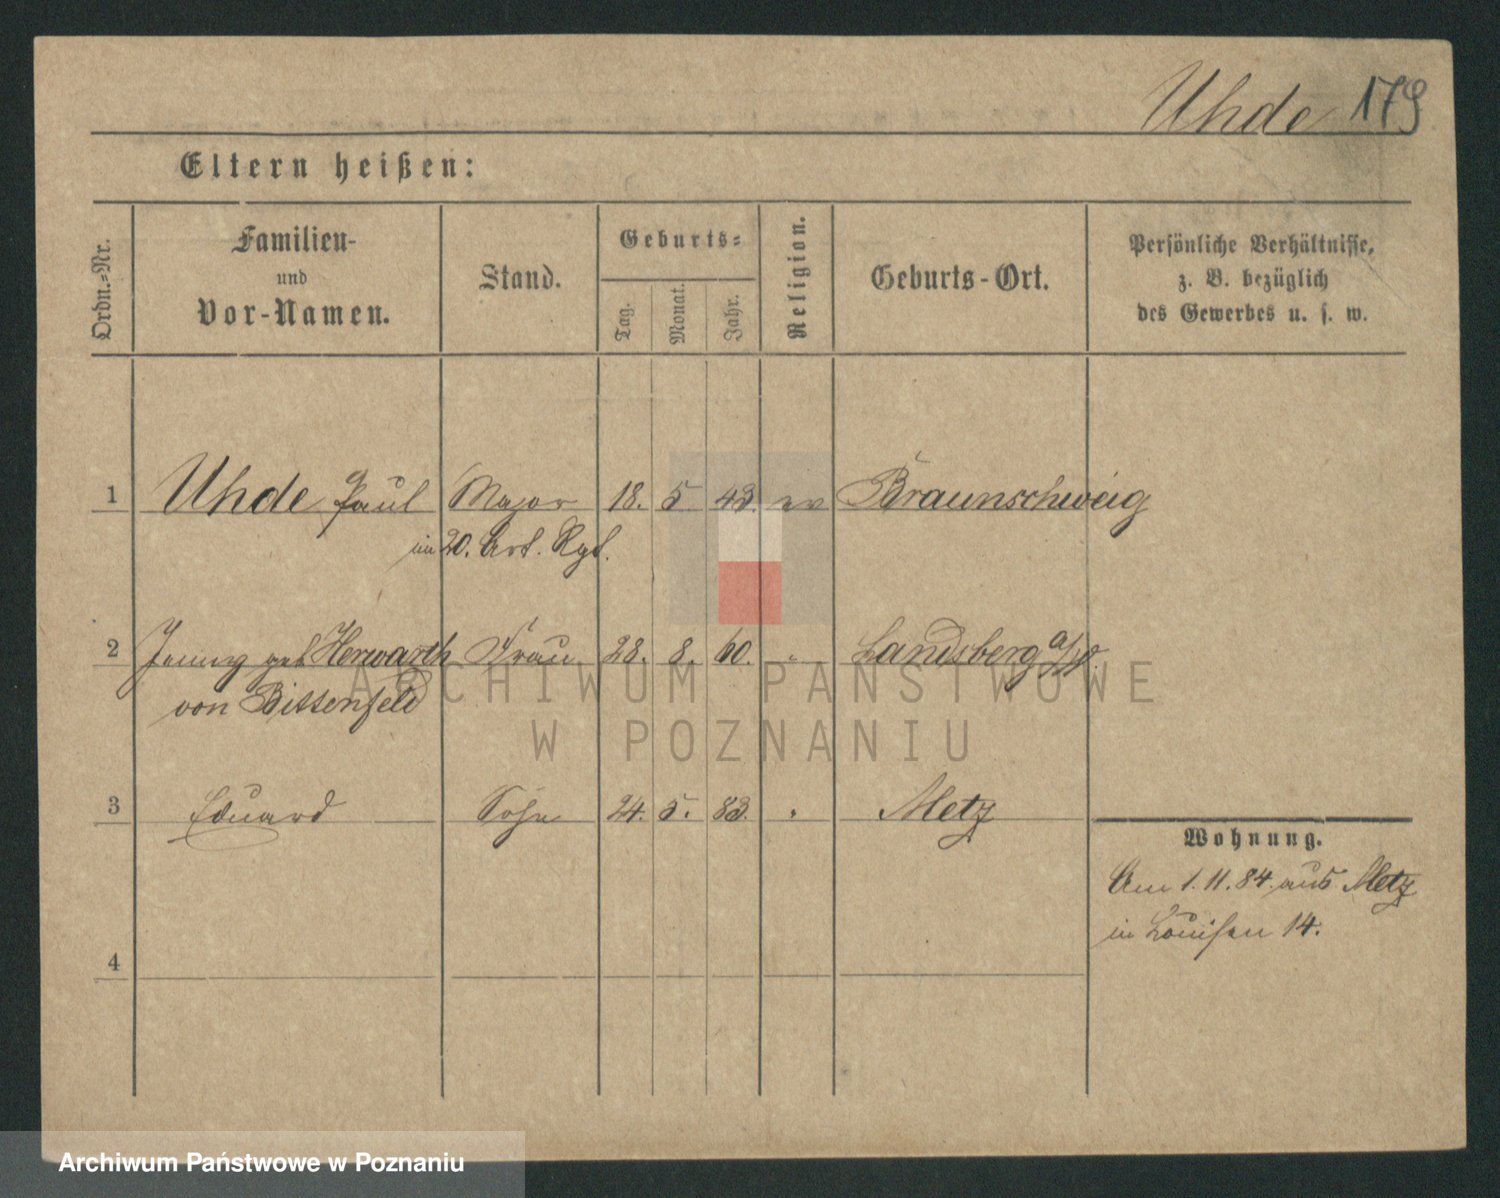 Uhde 179
Eltern heißen:
Ordn.-Nr.
Familien-
und
Vor-Namen.
Stand.
Geburts-
Tag.
Monat.
Jahr.
Religion.
Geburts-Ort.
Persönliche Verhältnisse,
z. B. bezüglich
des Gewerbes u. s. w.
1 Uhde Paul Major 18. 5 43. ev Braunschweig
im 20. Art. Rgt.
2 Jenny geb Herwarth Frau 28. 8. 60. " Landsberg a/W.
von Bittenfeld
3 Eduard Sohn 24. 5. 83. " Metz
Wohnung.
Am 1. 11. 84. aus Metz
in Louisen 14.
4
ARCHIWUM PAŃSTWOWE
W POZNANIU
Archiwum Państwowe w Poznaniu